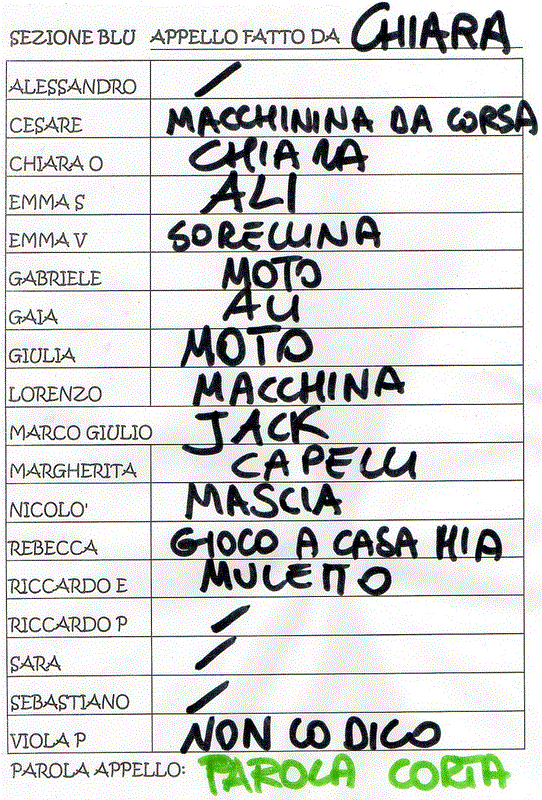 SEZIONE BLU APPELLO FATTO DA CHIARA
ALESSANDRO /
CESARE MACCHININA DA CORSA
CHIARA O CHIARA
EMMA S ALI
EMMA V SORELLINA
GABRIELE MOTO
GAIA ALI
GIULIA MOTO
LORENZO MACCHINA
MARCO GIULIO JACK
MARGHERITA CAPELLI
NICOLO' MASCIA
REBECCA GIOCO A CASA MIA
RICCARDO E MULETTO
RICCARDO P /
SARA /
SEBASTIANO /
VIOLA P NON LO DICO
PAROLA APPELLO: PAROLA CORTA